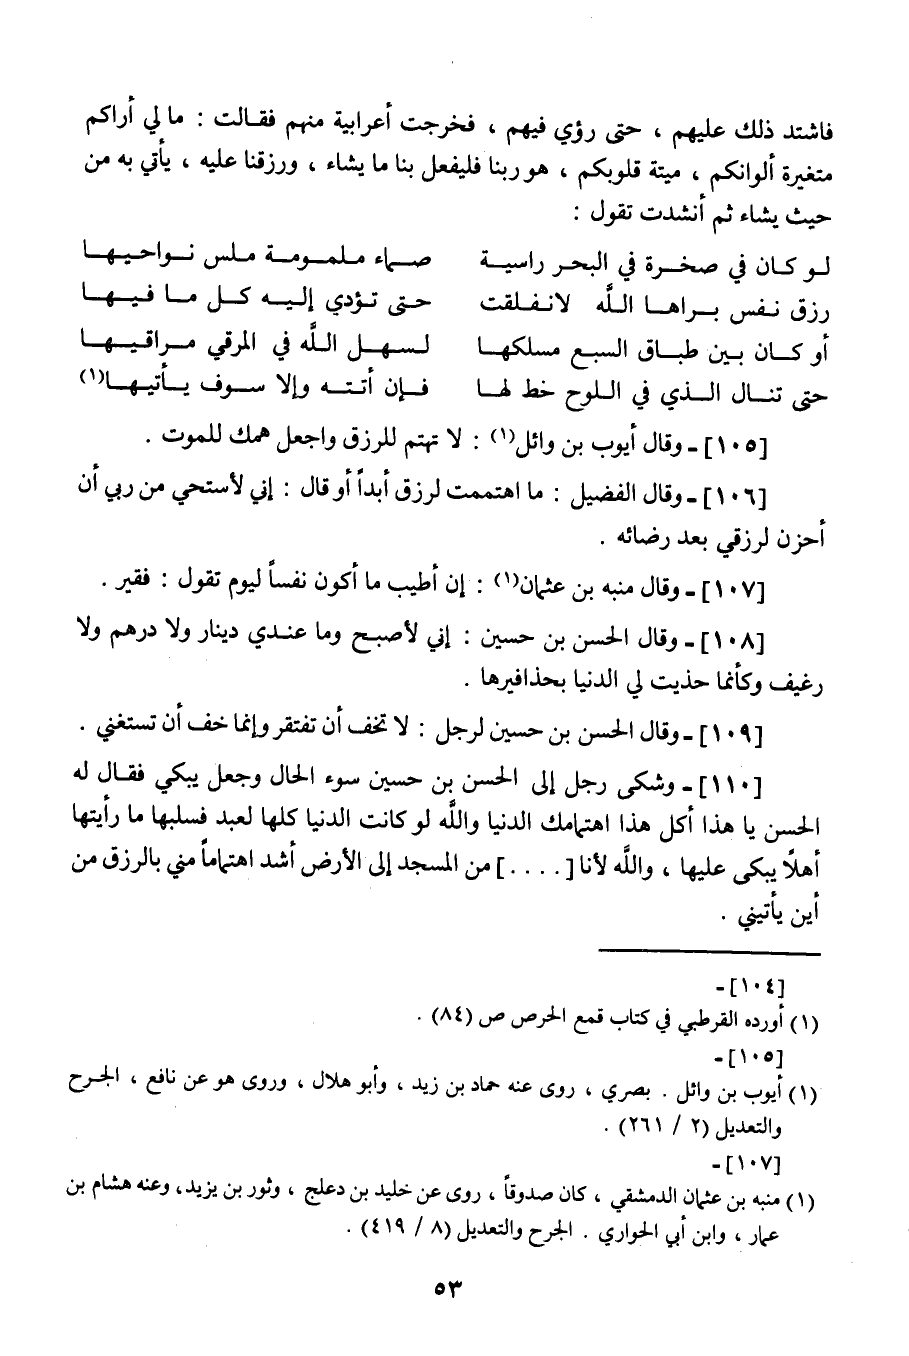 فاشتد ذلك عليهم ، حتى رؤي فيهم ، فخرجت أعرابية منهم فقالت : ما لي أراكم
متغيرة ألوانكم ، ميتة قلوبكم ، هو ربنا فليفعل بنا ما يشاء ، ورزقنا عليه ، يأتي به من
حيث يشاء ثم أنشدت تقول :
لو كان في صخرة في البحر راسية صماء ملمومة ملس نواحيها
رزق نفس براها اللَّه لانفلقت حتى تؤدي إليه كل ما فيها
أو كان بين طباق السبع مسلكها لسهل اللَّه في المرقي مراقيها
حتى تنال الذي في اللوح خط لها فإن أتته وإلا سوف يأتيها(١)
[١٠٥] - وقال أيوب بن وائل(١) : لا تهتم للرزق واجعل همك للموت .
[١٠٦] - وقال الفضيل : ما اهتممت لرزق أبداً أو قال : إني لأستحي من ربي أن
أحزن لرزقي بعد رضائه .
[١٠٧] - وقال منبه بن عثمان(١) : إن أطيب ما أكون نفساً ليوم تقول : فقير .
[١٠٨] - وقال الحسن بن حسين : إني لأصبح وما عندي دينار ولا درهم ولا
رغيف وكأنما حذيت لي الدنيا بحذافيرها .
[١٠٩] - وقال الحسن بن حسين لرجل : لا تخف أن تفتقر وإنما خف أن تستغني .
[١١٠] - وشكى رجل إلى الحسن بن حسين سوء الحال وجعل يبكي فقال له
الحسن يا هذا أكل هذا اهتمامك الدنيا واللَّه لو كانت الدنيا كلها لعبد فسلبها ما رأيتها
أهلاً يبكى عليها ، واللَّه لأنا [ . . . . ] من المسجد إلى الأرض أشد اهتماماً مني بالرزق من
أين يأتيني .
[١٠٤] -
(١) أورده القرطبي في كتاب قمع الحرص ص (٨٤) .
[١٠٥] -
(١) أيوب بن وائل . بصري ، روى عنه حماد بن زيد ، وأبو هلال ، وروى هو عن نافع ، الجرح
والتعديل (٢ / ٢٦١) .
[١٠٧] -
(١) منبه بن عثمان الدمشقي ، كان صدوقاً ، روى عن خليد بن دعلج ، وثور بن يزيد، وعنه هشام بن
عمار ، وابن أبي الحواري . الجرح والتعديل (٨ / ٤١٩) .
٥٣